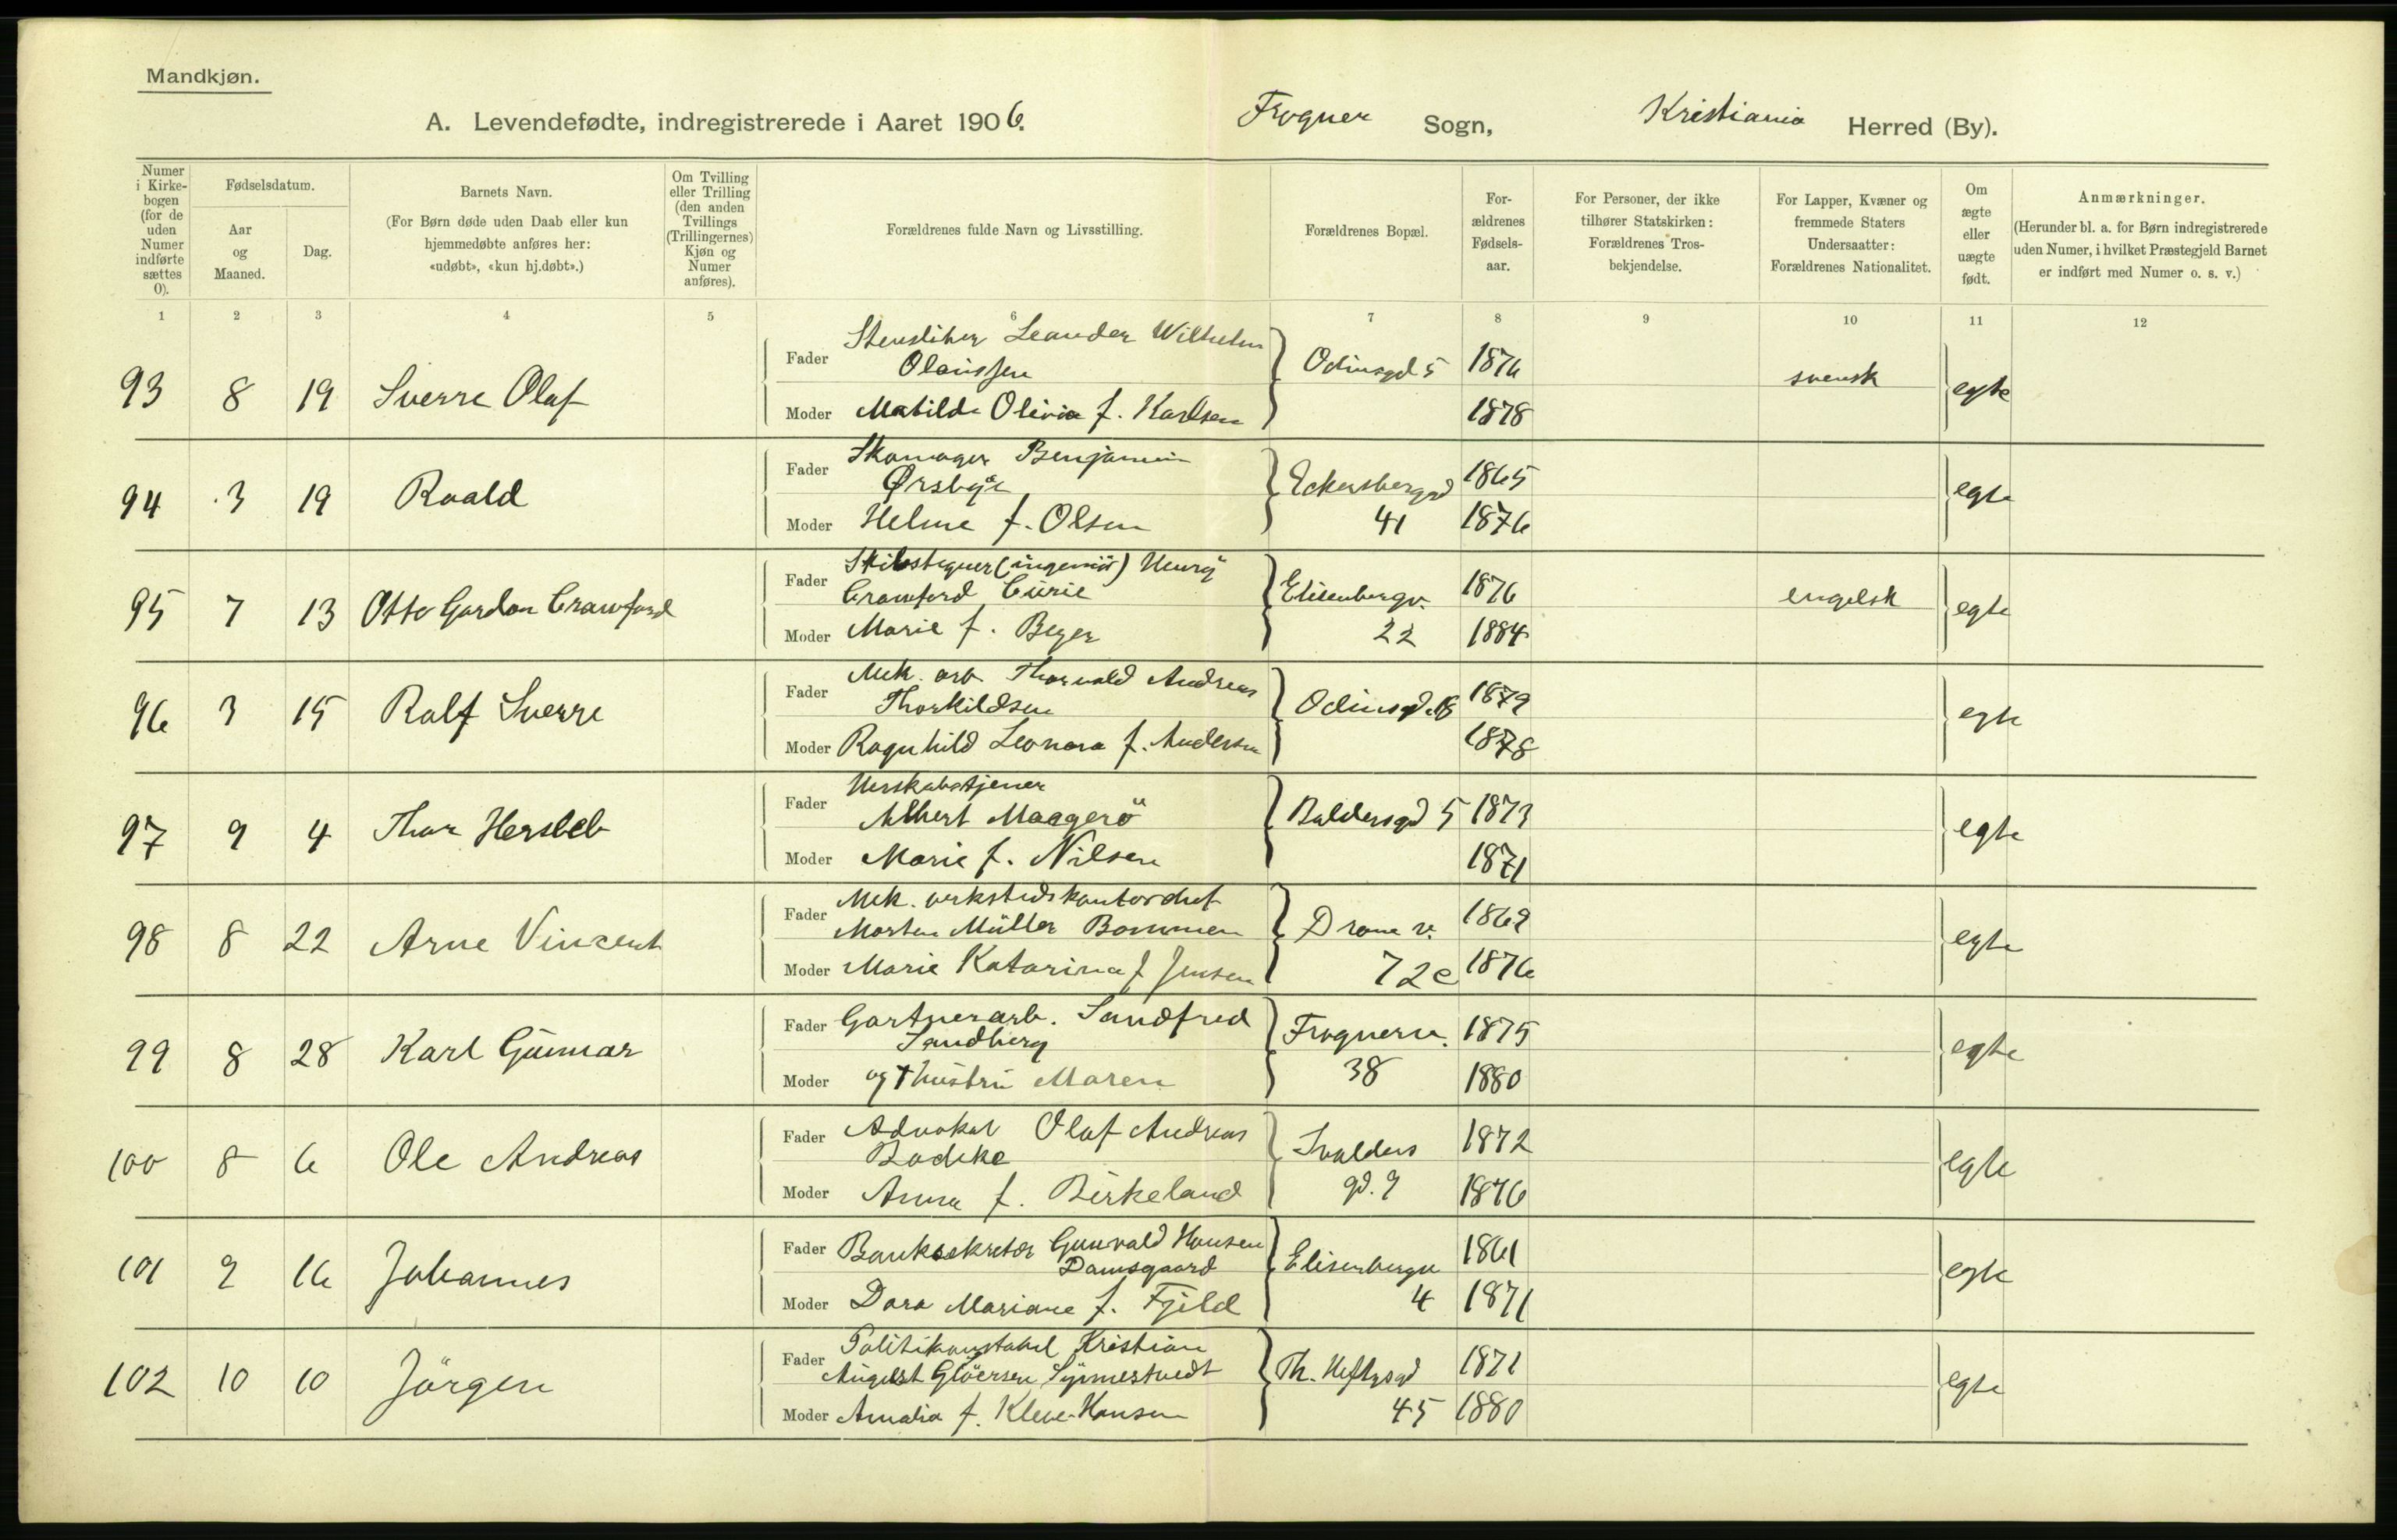 Mandkjøn.
A. Levendefødte, indregistrerede i Aaret 1906. Frogner Sogn, Kristiania Herred (By).
Numer i Kirke-bogen (for de uden Numer indførte sættes 0).
Fødselsdatum.
Aar og Maaned.
Dag.
Barnets Navn.
(For Børn døde uden Daab eller kun hjemmedøbte anføres her: «udøbt», «kun hj.døbt».)
Om Tvilling eller Trilling (den anden Tvillings (Trillingernes) Kjøn og Numer anføres).
Forældrenes fulde Navn og Livsstilling.
Forældrenes Bopæl.
For-ældrenes Fødsels-aar.
For Personer, der ikke tilhører Statskirken: Forældrenes Tros-bekjendelse.
For Lapper, Kvæner og fremmede Staters Undersaatter: Forældrenes Nationalitet.
Om ægte eller uægte født.
Anmærkninger.
(Herunder bl. a. for Børn indregistrerede uden Numer, i hvilket Præstegjeld Barnet er indført med Numer o. s. v.)
1 2 3 4 5 6 7 8 9 10 11 12
93 8 19 Sverre Olaf
Fader Stensliber Leander Wilhelm
Olaussen Odinsgd 5 1876 svensk egte
Moder Matilde Olivia f. Karlsen 1878
94 3 19 Roald
Fader Skomager Benjamin
Eckersbergd 1865 egte
Moder Helene f. Olsen 41 1876
95 7 13 Otto Gordon Crawford
Fader Skibstegner (ingeniör) Henry
Crawford Curie Elisenbergv. 1876 engelsk egte
Moder Marie f. Beyer 22 1884
96 3 15 Ralf Sverre
Fader Mek. arb. Thorvald Andreas
Thorkildsen Odinsgd. 1879 egte
Moder Ragnhild Leonora f. Andersen 1878
97 9 4 Thor Hersleb
Fader Herskabstjener
Albert Maagerö Baldersgd 5 1873 egte
Moder Marie f. Nilsen 1871
98 8 22 Arne Vincent
Fader Mek. verkstedskontorchef
Morten Müller Bommen Dram v. 1869 egte
Moder Marie Katarina f Jensen 72c 1876
99 8 28 Karl Gunnar
Fader Gartnerarb. Sandfred
Sandberg Frognerv. 1875 egte
Moder og hustru Maren 38 1880
100 8 6 Ole Andreas
Fader Advokat Olaf Andreas
Badcke Ivalders 1872 egte
Moder Anna f. Birkeland gd. 9 1876
101 9 16 Johannes
Fader Banksekretær Gunvald Hansen
Damsgaard Elisenbergv 1861 egte
Moder Dora Mariane f. Fjeld 4 1871
102 10 10 Jörgen
Fader Politikonstabel Kristian
August Glöersen Synnestvedt Th. Heftysgd 1871 egte
Moder Amalia f. Kleve-Hansen 45 1880